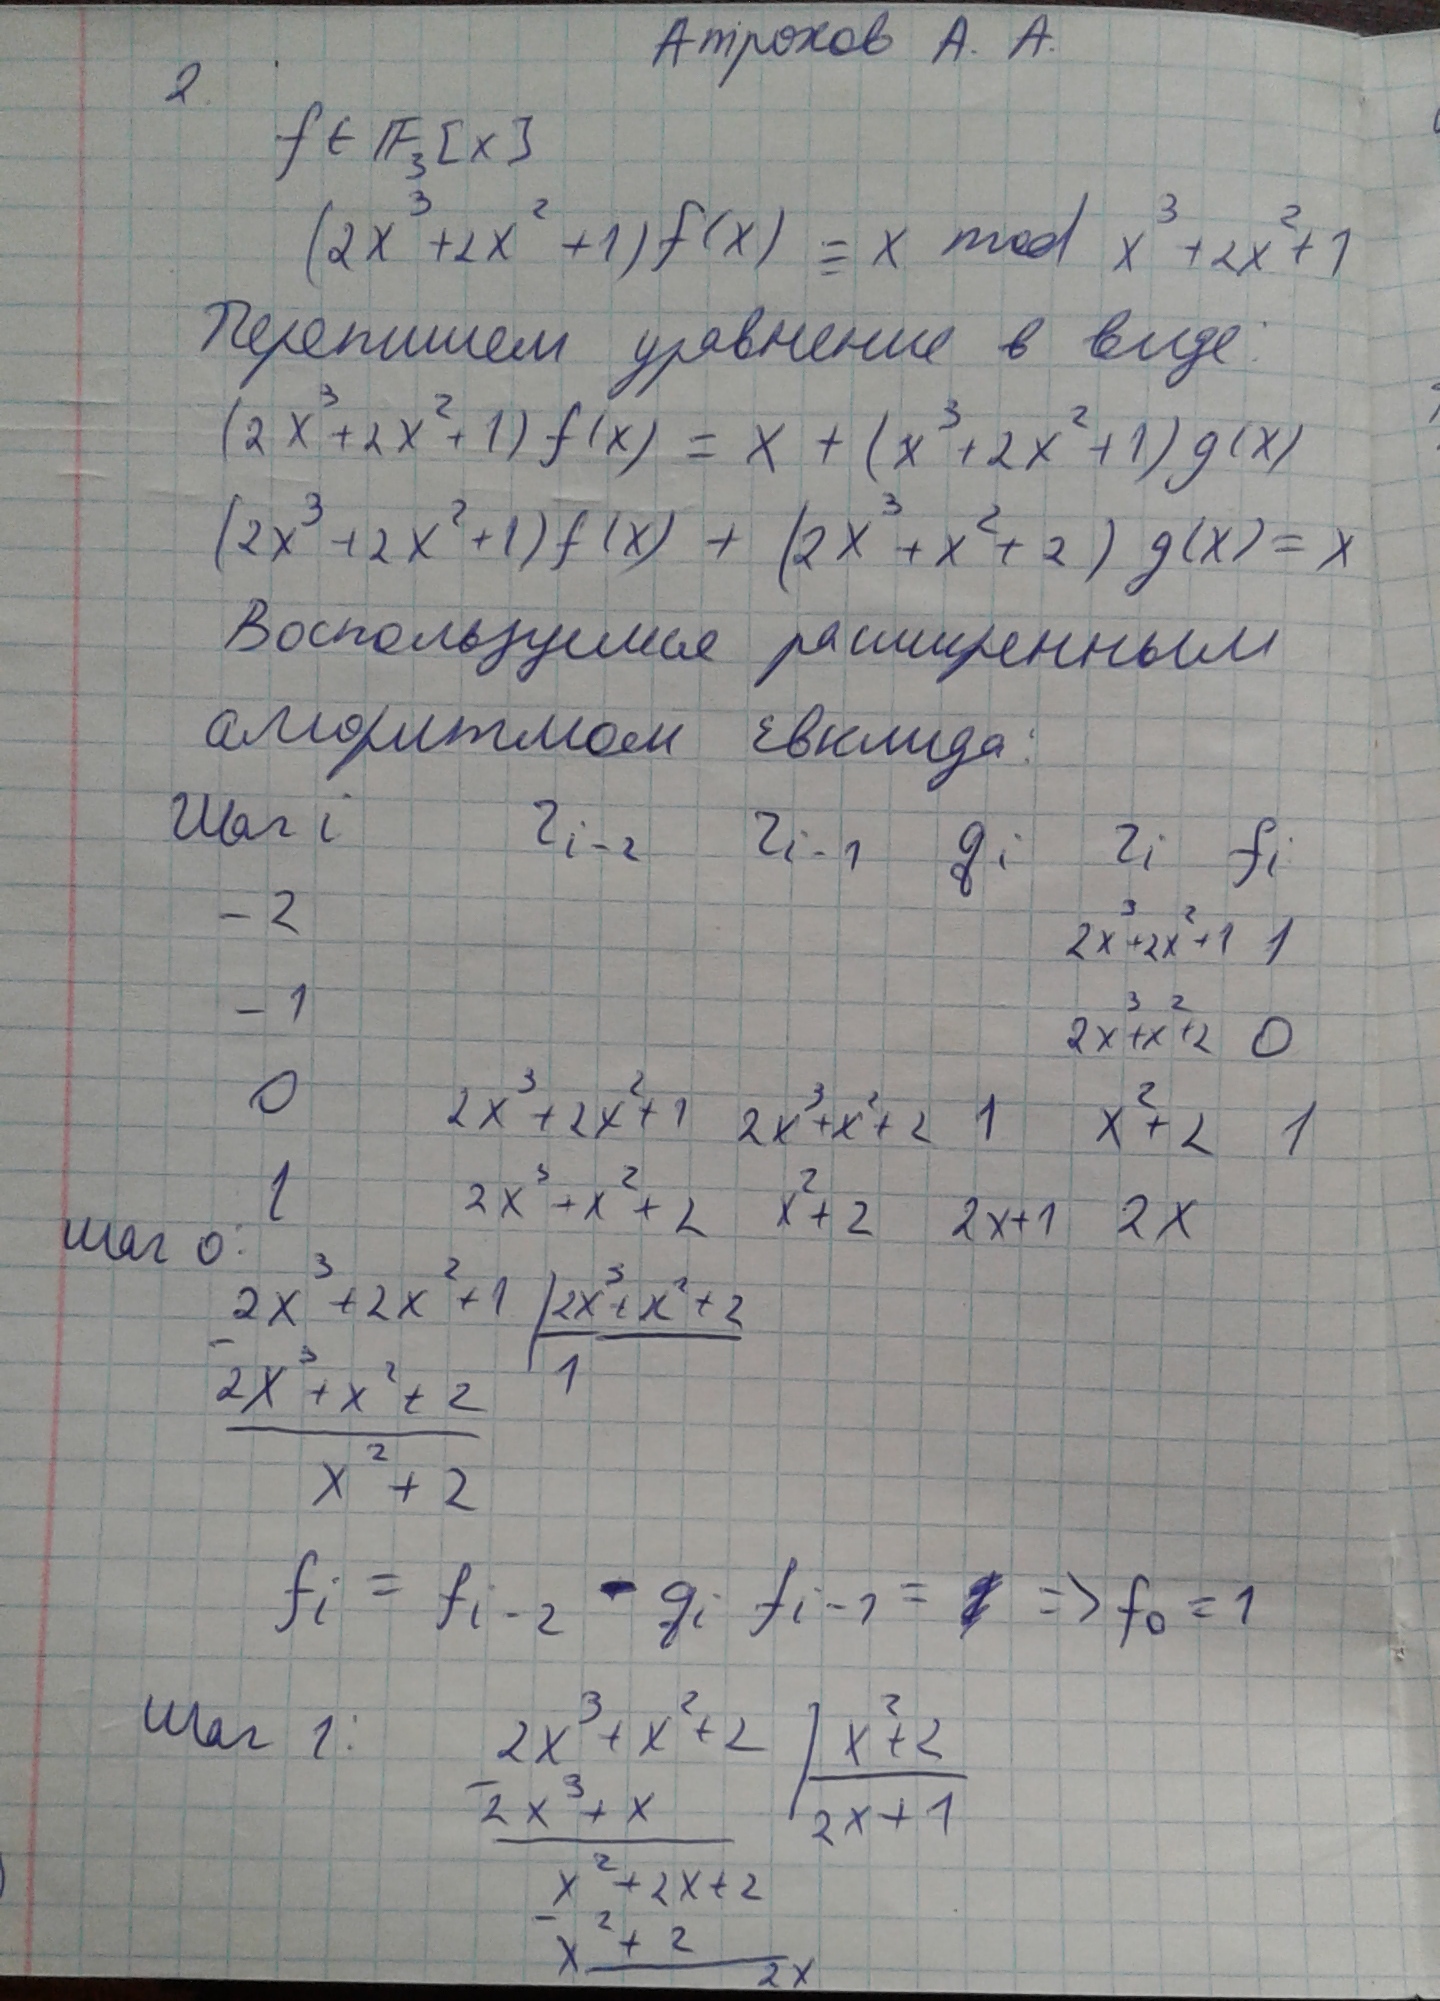 Атрохов А. А.
2.
f ∈ F₃[x]
(2x³+2x²+1)f(x) ≡ x mod x³+2x²+1
Перепишем уравнение в виде:
(2x³+2x²+1)f(x) = x + (x³+2x²+1)g(x)
(2x³+2x²+1)f(x) + (2x³+x²+2)g(x) = x
Воспользуемся расширенным
алгоритмом Евклида:
Шаг i r_{i-2} r_{i-1} g_i r_i f_i
-2 2x³+2x²+1 1
-1 2x³+x²+2 0
0 2x³+2x²+1 2x³+x²+2 1 x²+2 1
1 2x³+x²+2 x²+2 2x+1 2x
Шаг 0:
2x³+2x²+1 | 2x³+x²+2
- 2x³+x²+2 1
x²+2
f_i = f_{i-2} - g_i f_{i-1} = => f₀ = 1
Шаг 1: 2x³+x²+2 | x²+2
- 2x³+x 2x+1
x²+2x+2
- x²+2
2x